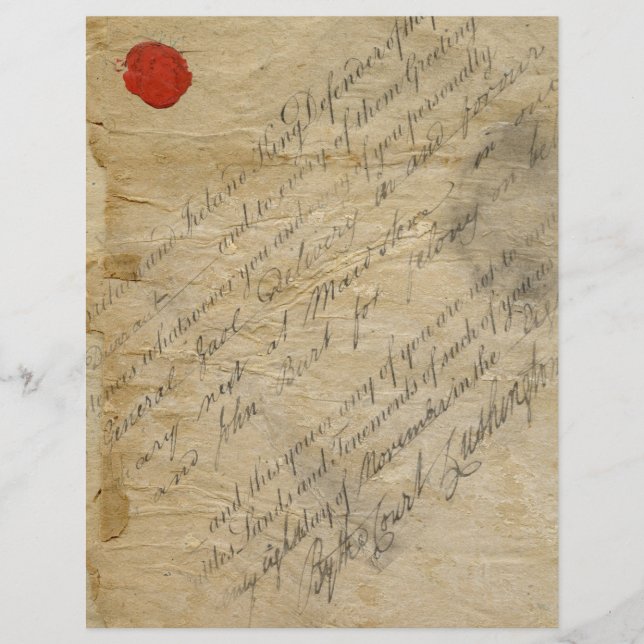 Ireland King Defender of the
and to every of them Greeting
whatsoever you and every of you personally
General Gaol Delivery in and for our
next at Maidstone in our
and John Burt for felony on be
and this you or any of you are not to
Lands and Tenements of such of you as
day of November in the
By the Court Lushington